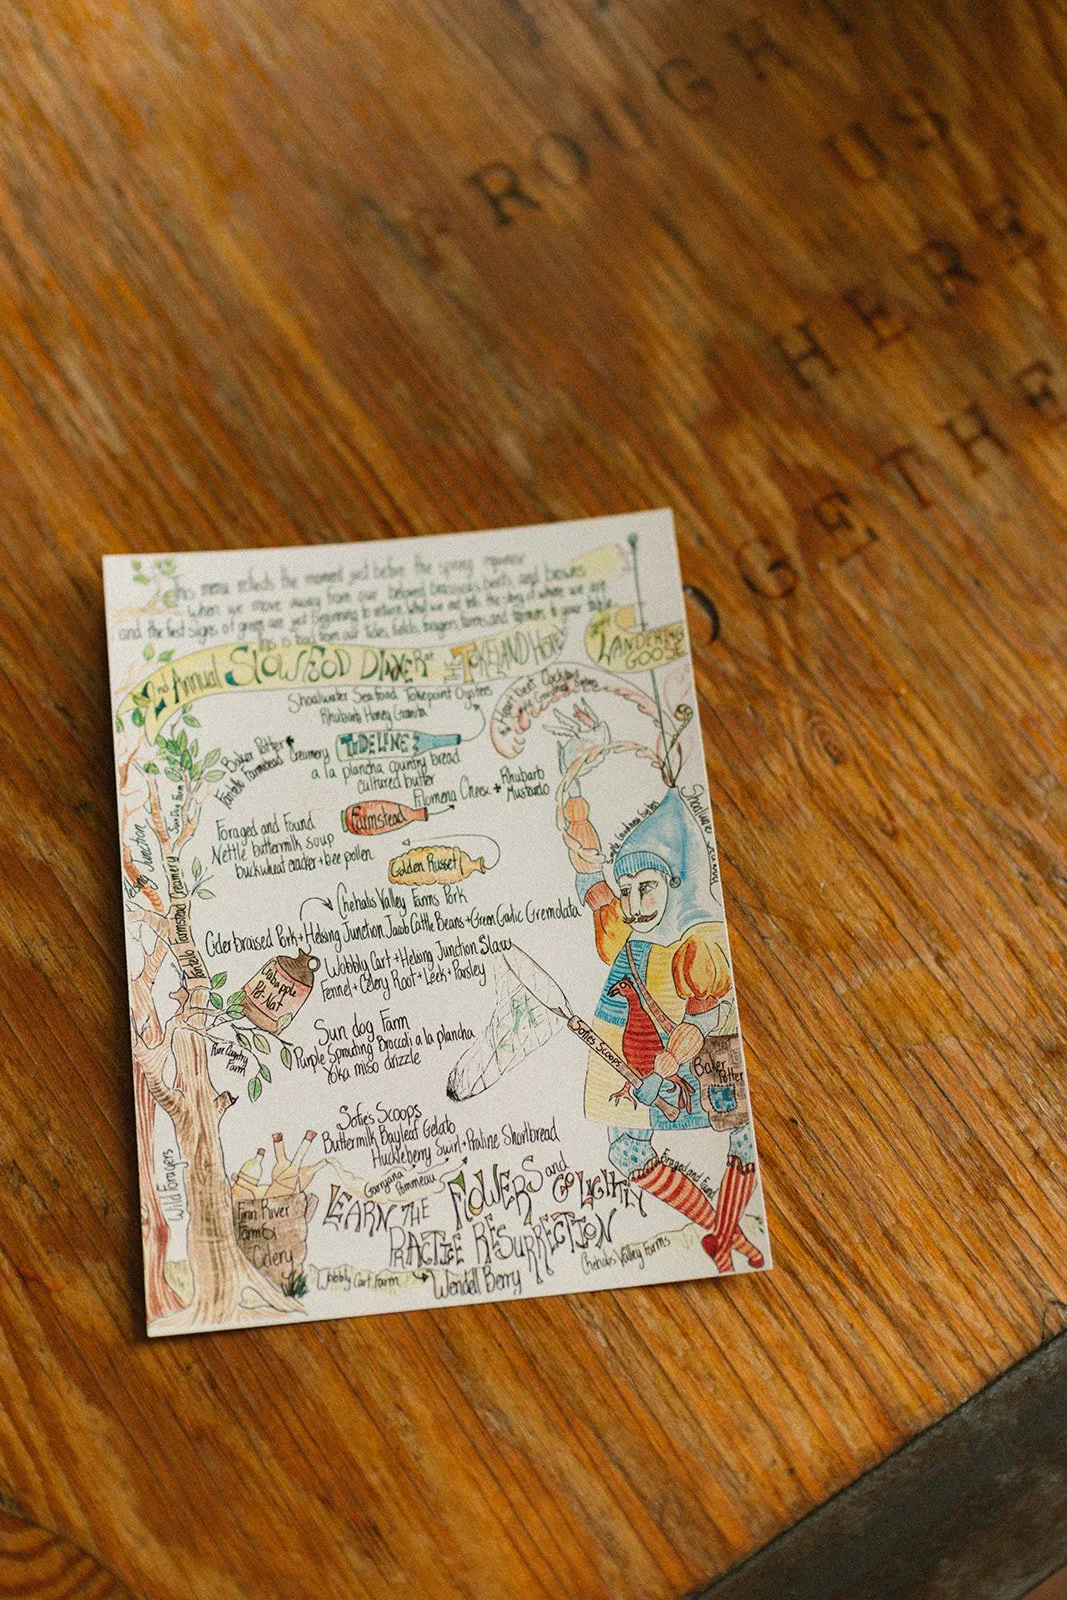 BROUGHT
US
HERE
TOGETHE
This menu reflects the moment just before the spring
when we move away from our beloved brassicas, beets and
and the first signs of green are just beginning to return. What we eat tells the story of where we are
This is food from our tides, fields, foragers, farms and farmers to your table
2nd Annual SLOW FOOD DINNER at THE TOKELAND HOTEL
WANDERING GOOSE
Shoalwater Seafood Tokepoint Oysters
Rhubarb Honey Granita
Heart Beet Cocktail
TIDELINE
Baker Potter
Tartello Farmstead Creamery
a la plancha country bread
cultured butter
Filomena Cheese + Rhubarb
Mustardo
Farmstead
Foraged and Found
Nettle buttermilk soup
buckwheat cracker + bee pollen
Golden Russet
Chehalis Valley Farms Pork
Ciderbraised Pork + Helsing Junction Jacob Cattle Beans + Green Garlic Gremolata
Wobbly Cart + Helsing Junction Slaw
Fennel + Celery Root + Leek + Parsley
Crabapple
Pét-Nat
Sun dog Farm
Purple Sprouting Broccoli a la plancha
Yoka miso drizzle
Sofie's Scoops
Buttermilk Bayleaf Gelato
Huckleberry Swirl + Praline Shortbread
Garryana
Pommeau
LEARN THE FLOWERS and GO LIGHTLY
PRACTICE RESURRECTION
Wendell Berry
Helsing Junction
Sun Dog Farm
Tartello Farmstead Creamery
Wild Foragers
Finn River
Farm &
Cidery
Wobbly Cart Farm
Shoalwater Seafood
Sofie's Scoops
Baker
Potter
Foraged and Found
Chehalis Valley Farms